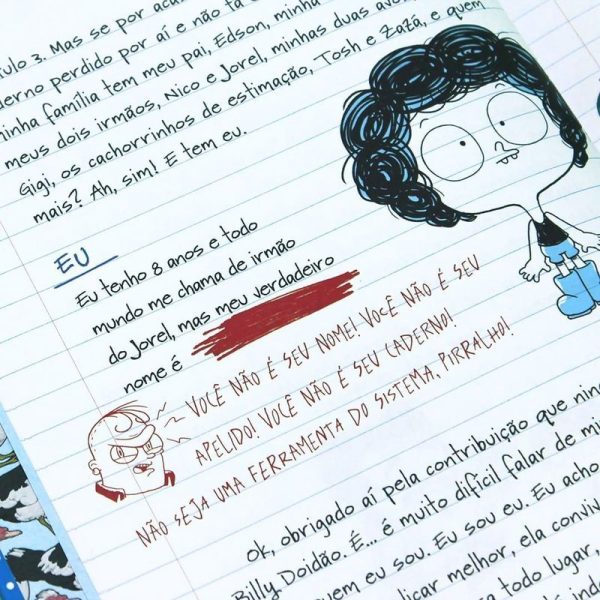 ulo 3. Mas se por aca
derno perdido por aí e não tá
minha família tem meu pai, Edson, minha
meus dois irmãos, Nico e Jorel, minhas duas avó
Gigi, os cachorrinhos de estimação, Tosh e Zazá, e quem
mais? Ah, sim! E tem eu.
EU
Eu tenho 8 anos e todo
mundo me chama de irmão
do Jorel, mas meu verdadeiro
nome é
VOCÊ NÃO É SEU NOME! VOCÊ NÃO É SEU
APELIDO! VOCÊ NÃO É SEU CADERNO!
NÃO SEJA UMA FERRAMENTA DO SISTEMA, PIRRALHO!
Ok, obrigado aí pela contribuição que nin
Billy Doidão. É... é muito difícil falar de mi
quem eu sou. Eu sou eu. Eu acho
licar melhor, ela conviv
a todo lugar,